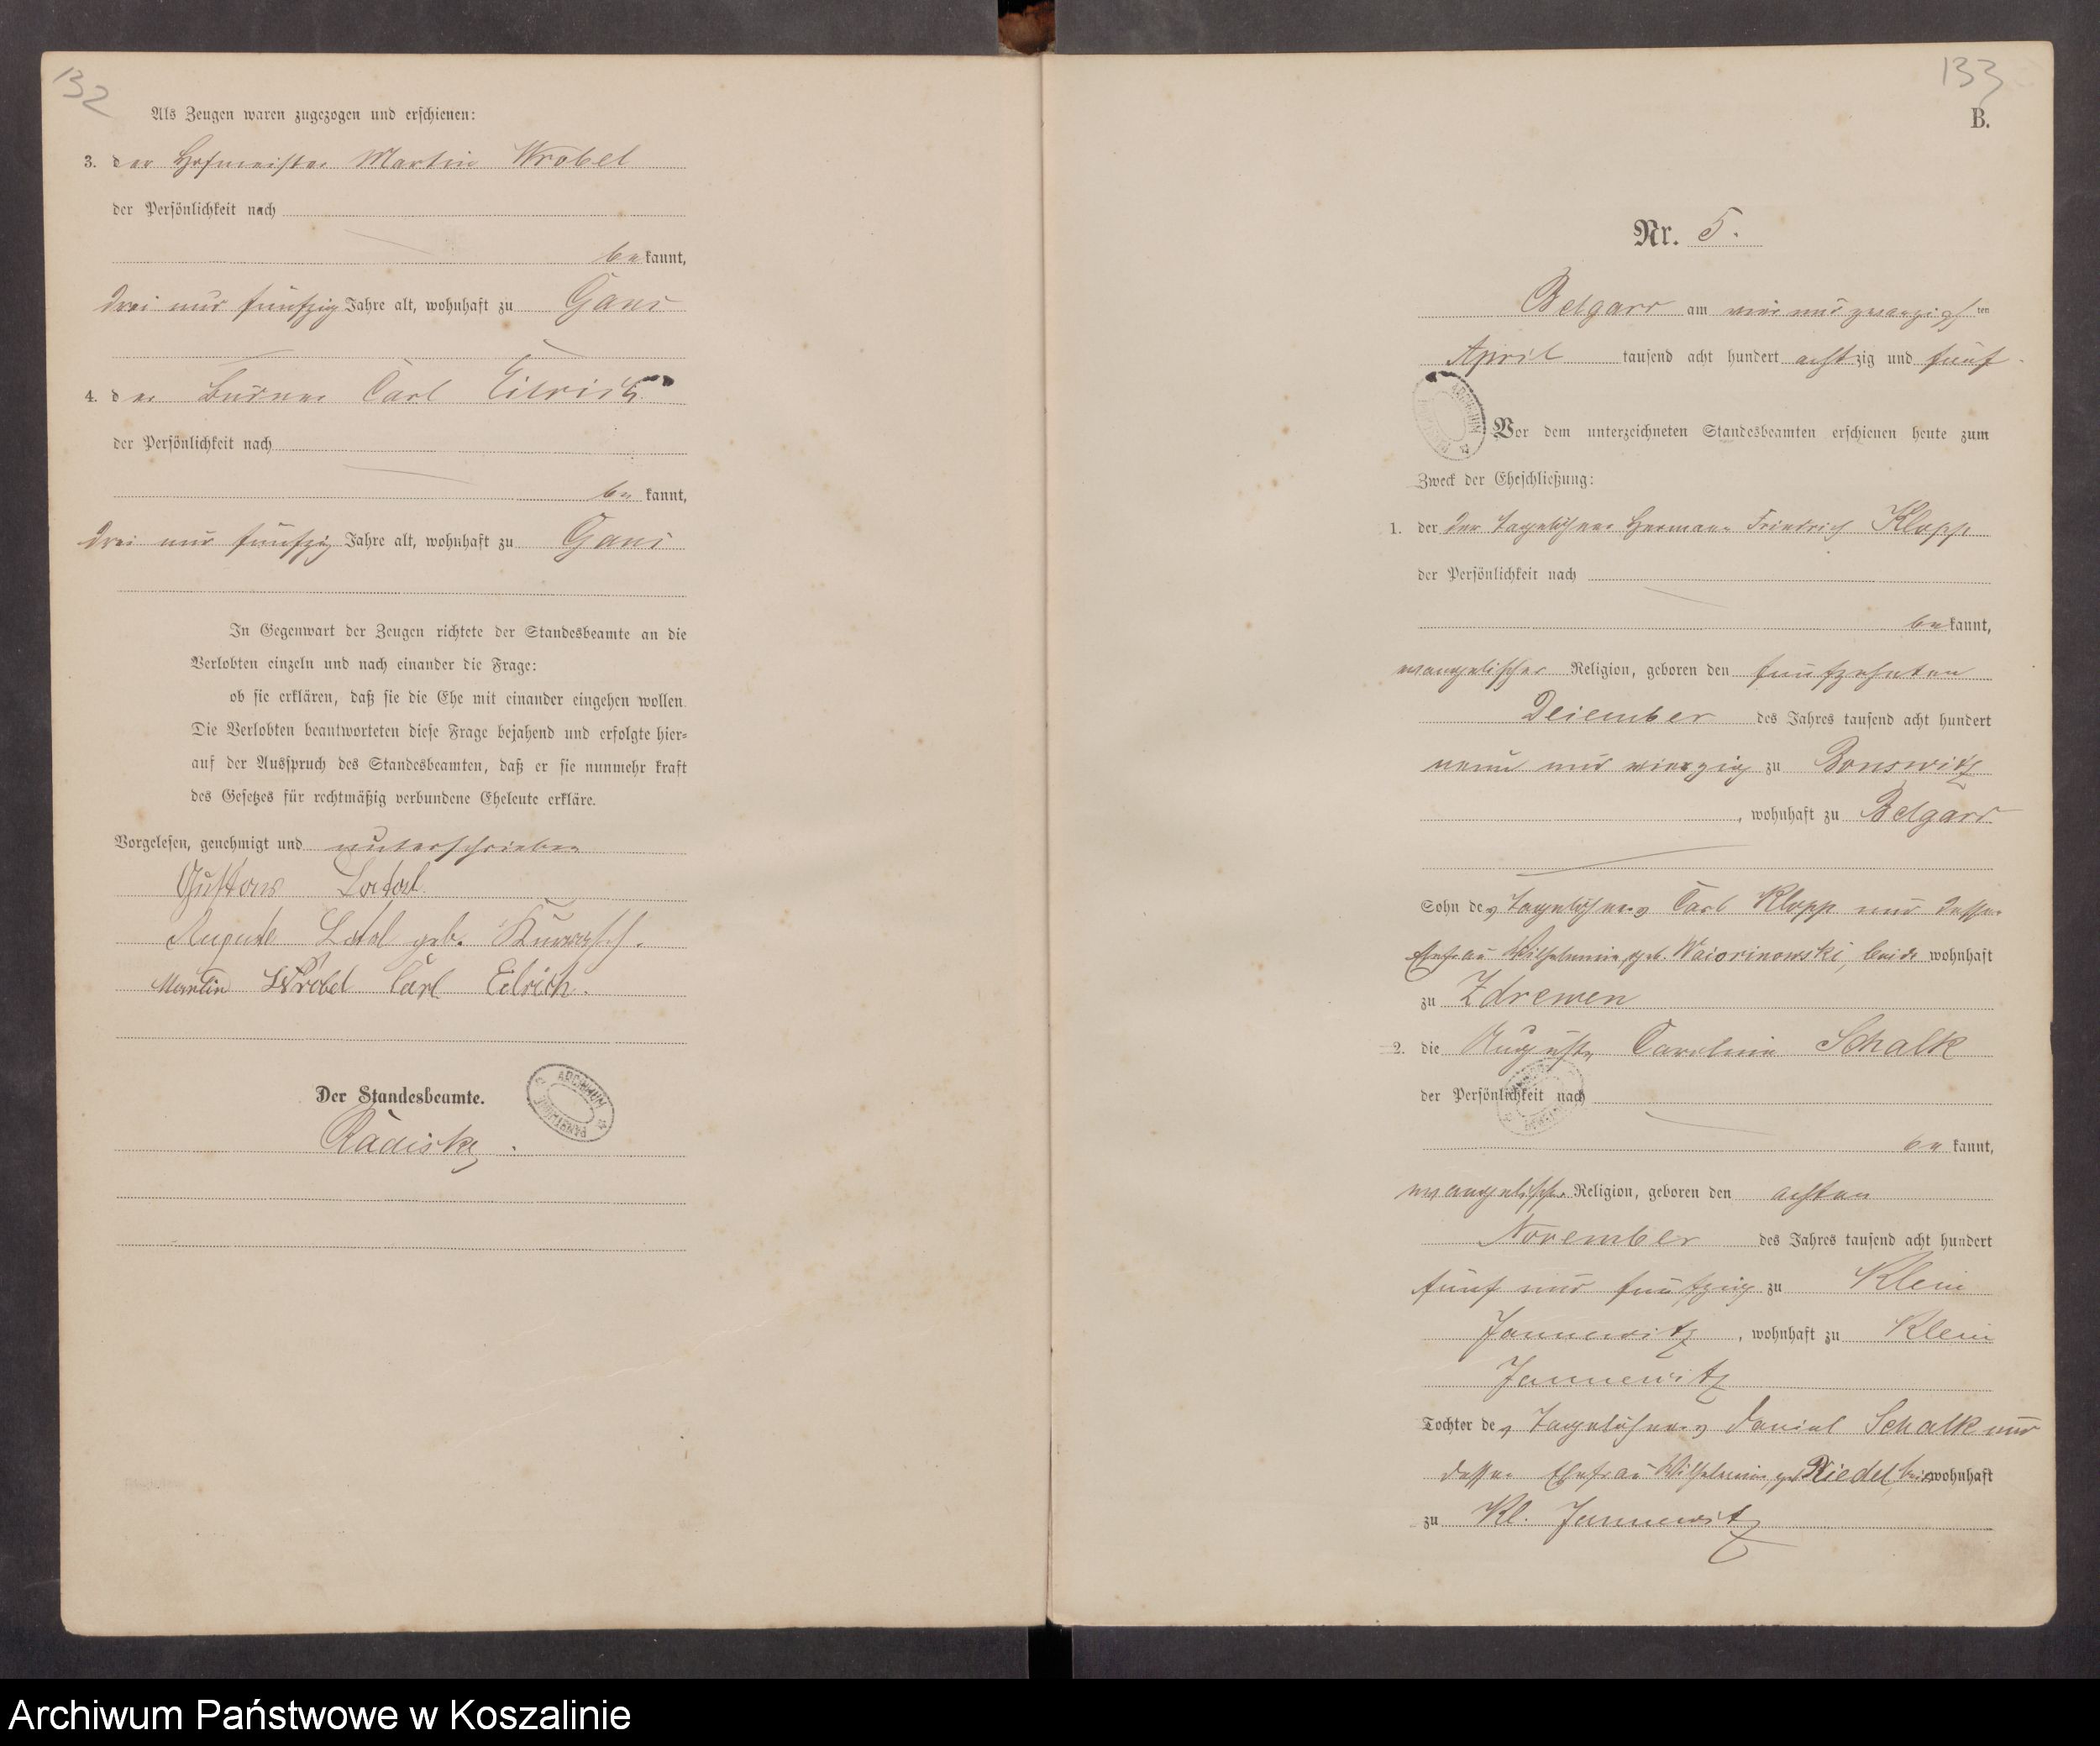 132
Als Zeugen waren zugezogen und erschienen:
3. der Hofmeister Martin Wrobel
der Persönlichkeit nach
bekannt,
drei und fünfzig Jahre alt, wohnhaft zu Gans
4. der Büdner Carl Eilrich
der Persönlichkeit nach
be kannt,
drei und fünfzig Jahre alt, wohnhaft zu Gans
In Gegenwart der Zeugen richtete der Standesbeamte an die
Verlobten einzeln und nach einander die Frage:
ob sie erklären, daß sie die Ehe mit einander eingehen wollen.
Die Verlobten beantworteten diese Frage bejahend und erfolgte hier-
auf der Ausspruch des Standesbeamten, daß er sie nunmehr kraft
des Gesetzes für rechtmäßig verbundene Eheleute erkläre.
Vorgelesen, genehmigt und unterschrieben
Gustav Lotal.
Auguste Lotal geb.
Martin Wrobel Carl Eilrich.
Der Standesbeamte.
Radiske.
ARCHIWUM
133
B.
Nr. 5.
Belgard am vier und zwanzigsten
April tausend acht hundert achtzig und fünf
ARCHIWUM
Vor dem unterzeichneten Standesbeamten erschienen heute zum
Zweck der Eheschließung:
1. der der Tagelöhner Hermann Friedrich Klopp
der Persönlichkeit nach
bekannt,
evangelischer Religion, geboren den fünfzehnten
Dezember des Jahres tausend acht hundert
neun und vierzig zu Bonswitz
, wohnhaft zu Belgard
Sohn des Tagelöhners Carl Klopp und dessen
Ehefrau Wilhelmine, geb. Waiorinowski, beide wohnhaft
zu Zdrewen
2. die Auguste Caroline Schalk
der Persönlichkeit nach
be kannt,
evangelischer Religion, geboren den achten
November des Jahres tausend acht hundert
fünf und fünfzig zu Klein
Jannewitz, wohnhaft zu Klein
Jannewitz
Tochter des Tagelöhners Daniel Schalk und
dessen Ehefrau Wilhelmine, geb. Riedel, beide wohnhaft
zu Kl. Jannewitz
Archiwum Państwowe w Koszalinie